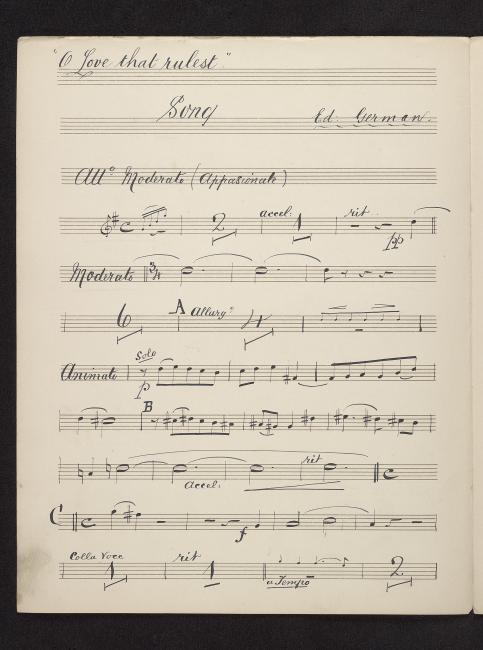 "O Love that rulest"
Song
Ed. German.
All° Moderato (Appasionato)
2 accel: 1 rit pp
Moderato 3/4
6 A Allarg° 4
Solo
Animato p
B
accel: rit C
C C f
Colla Voce 1 rit 1 a Tempo 2